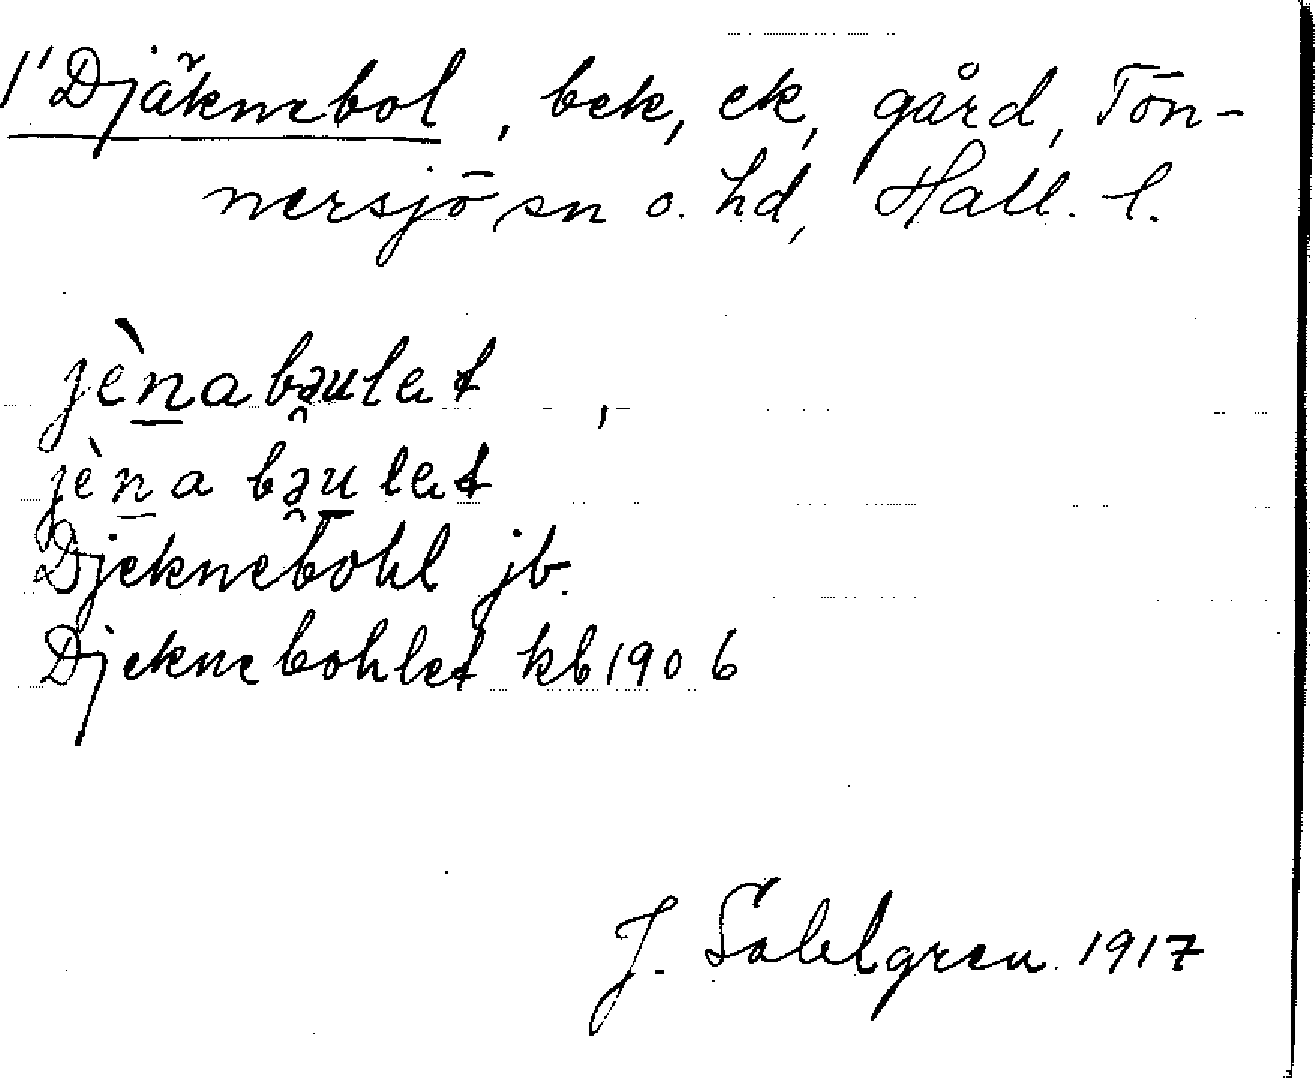 1' Djäknebol, bek, ek, gård, Tön-
nersjö sn o. hd, Hall. l.
jènabəulet
jèna bəulet
Djeknebohl jb.
Djeknebohlet kb 1906
J. Sahlgren 1917